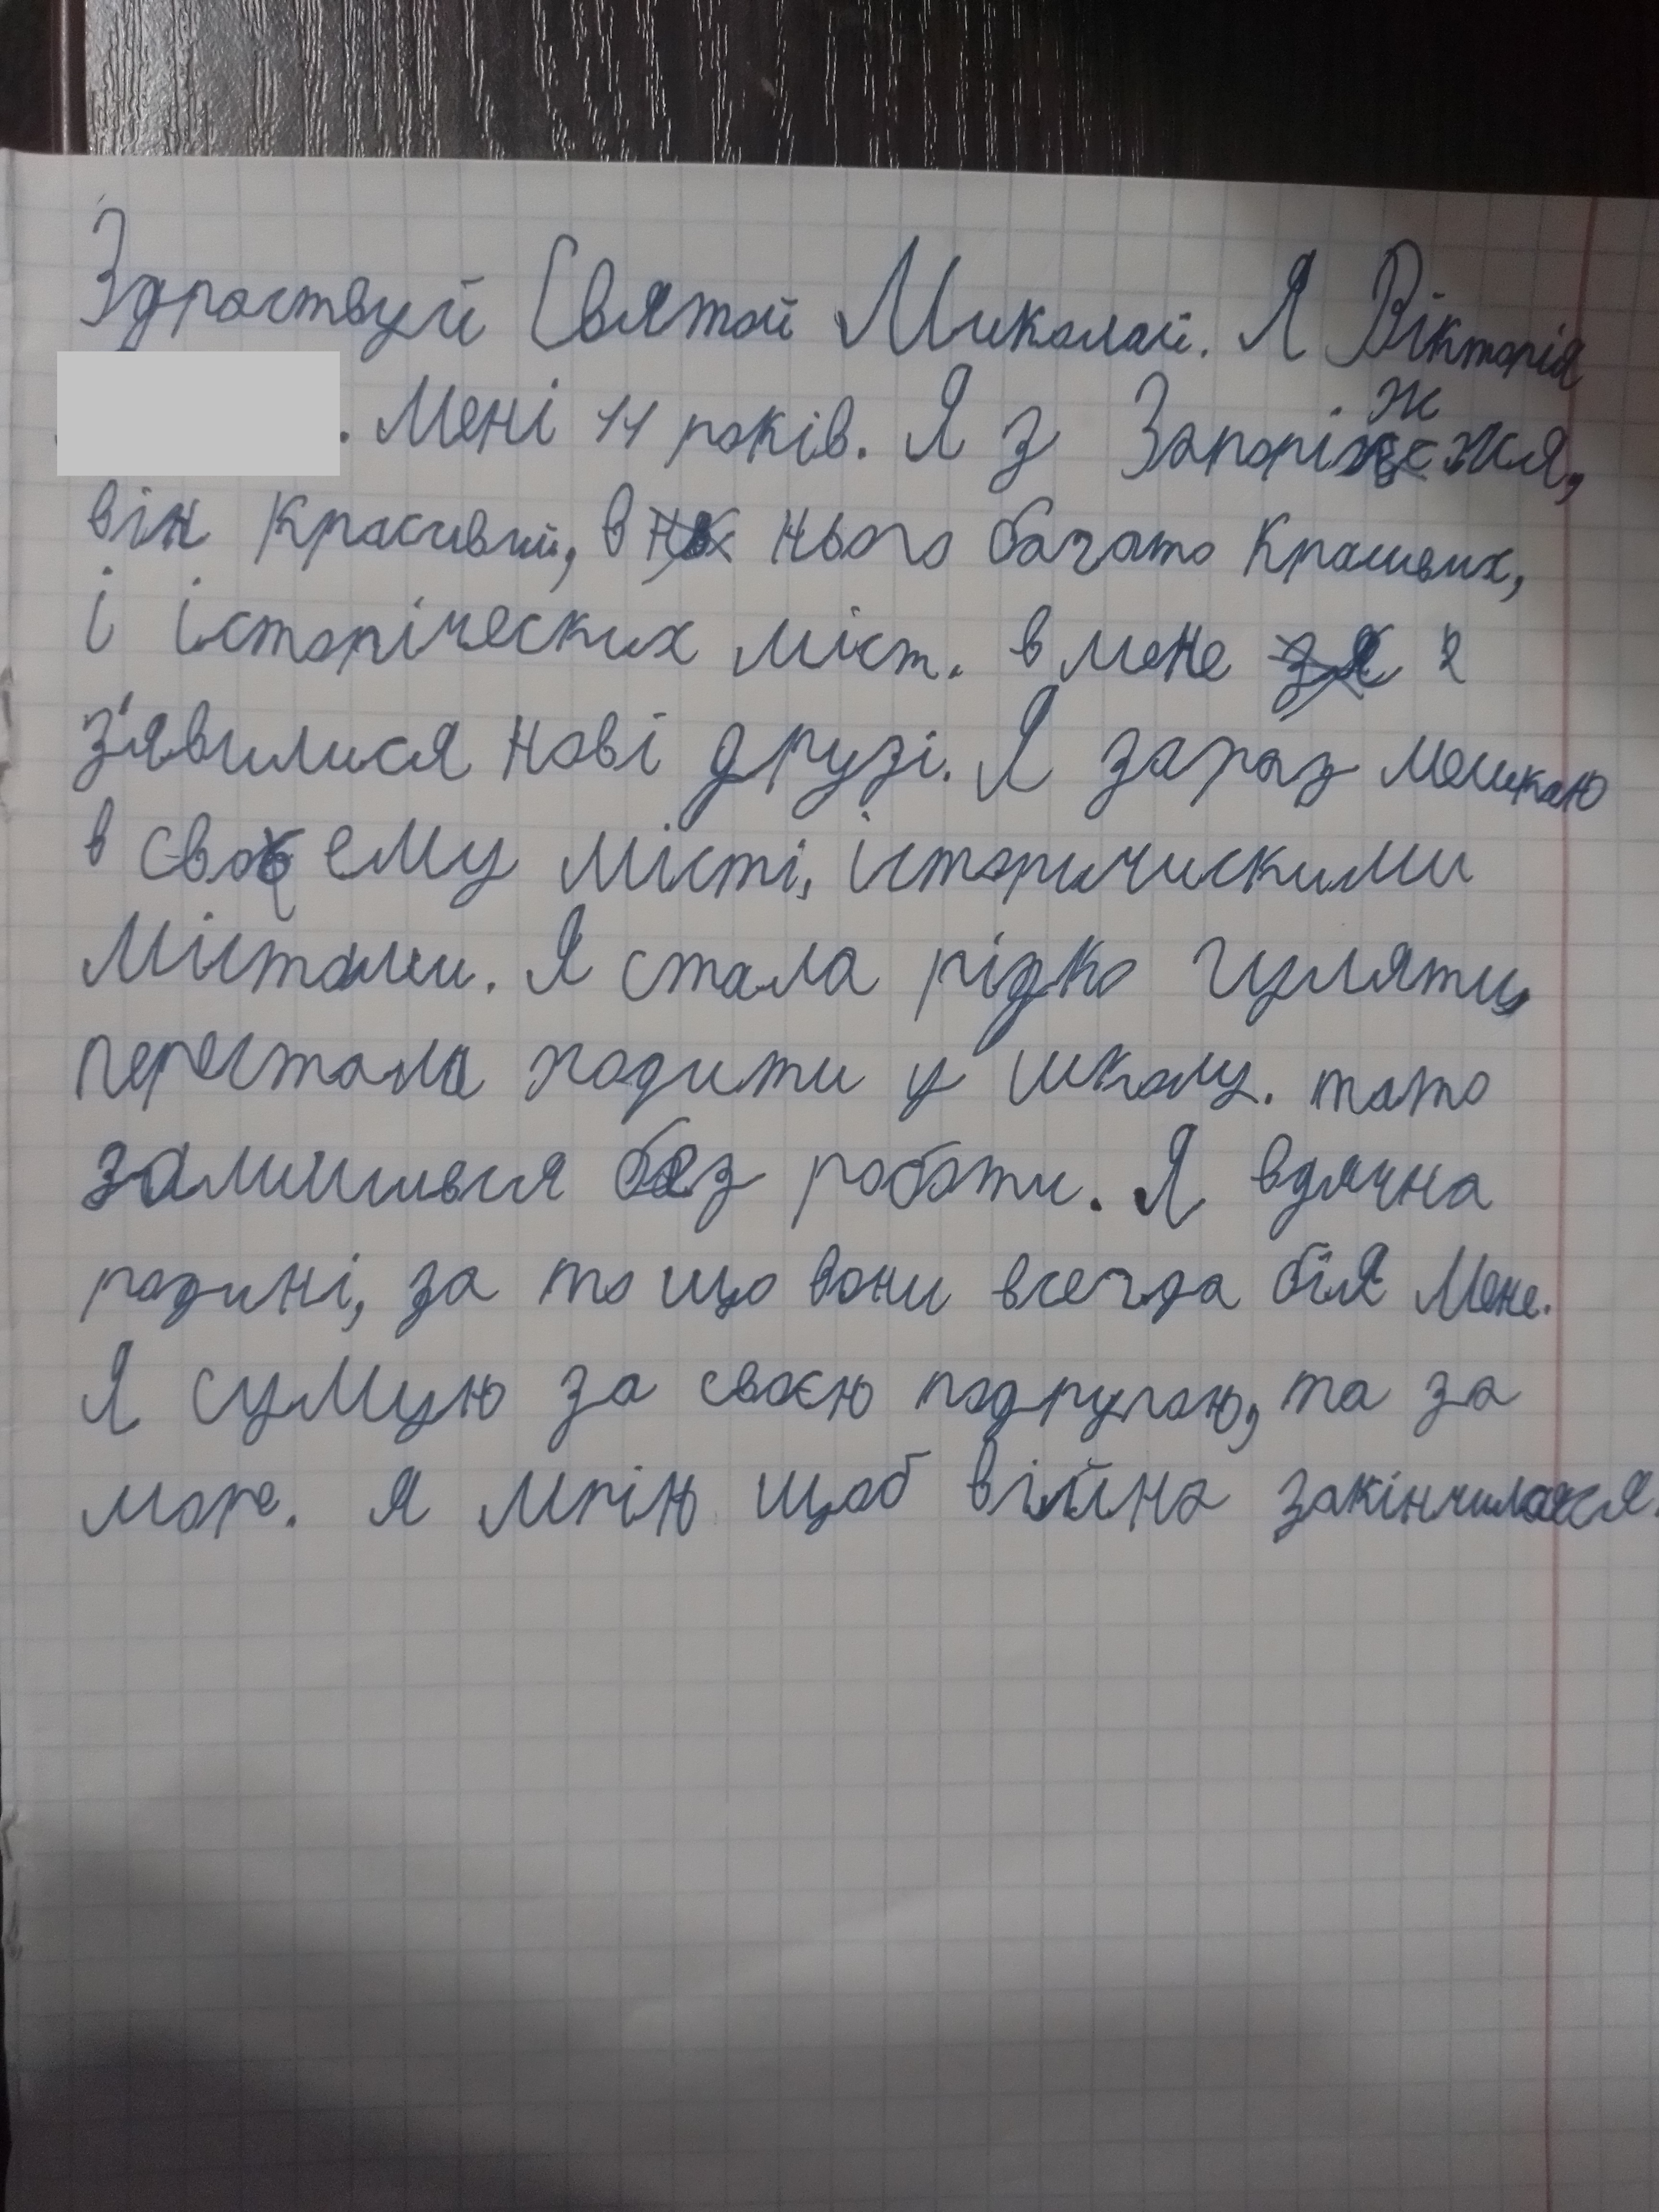 Здраствуй Святой Миколай. Я Вікторія
. Мені 11 років. Я з Запоріжжя,
він красивий, в нього багато красивих,
і історіческих міст. в мене
з'явилися нові друзі. Я зараз мешкаю
в своему місті, історичискими
містами. Я стала рідко гуляти,
перестала ходити у школу. тато
залишився без роботи. Я вдячна
родині, за то що вони всегда біля мене.
Я сумую за своєю подругою, та за
море. я мрію щоб війна закінчилася.